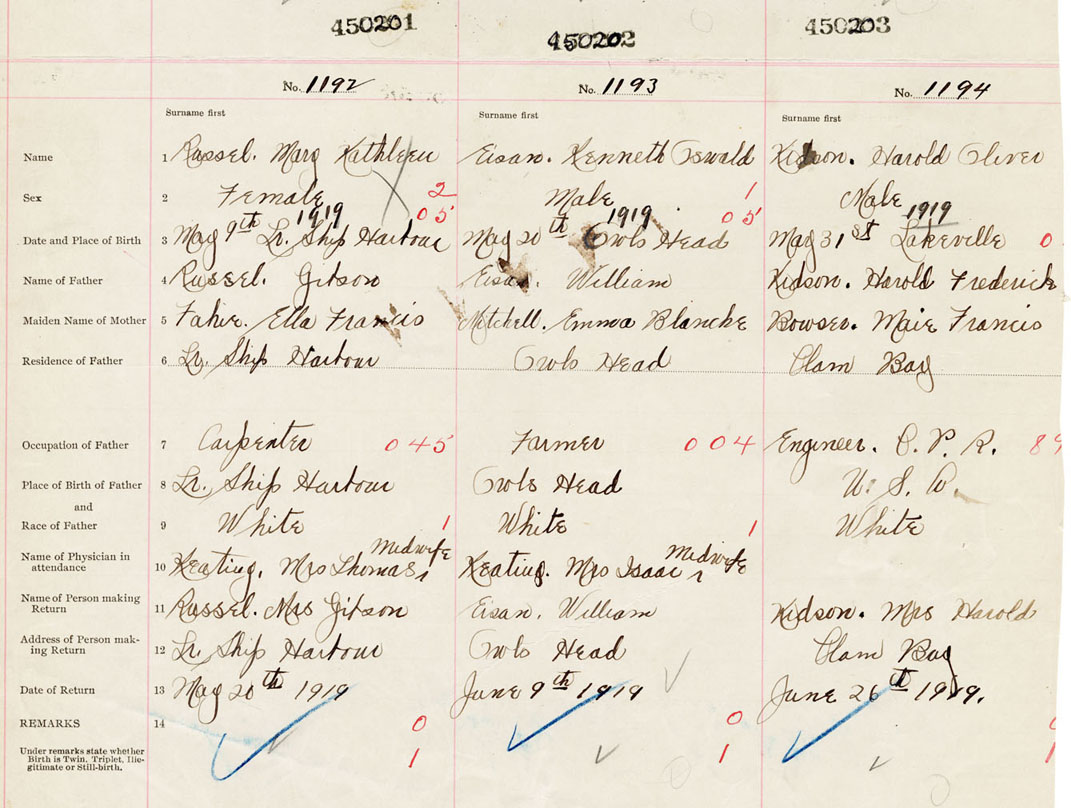 450201 450202 450203
No. 1192 No. 1193 No. 1194
Surname first Surname first Surname first
Name 1 Russel. Mary Kathleen Eisan. Kenneth Oswald Kidson. Harold Oliver
Sex 2 Female 2 Male 1 Male
1919 05 1919 05 1919
Date and Place of Birth 3 May 9th Lr. Ship Harbour May 20th Owls Head May 31st Lakeville 0
Name of Father 4 Russel. Gitson Eisan. William Kidson. Harold Frederick
Maiden Name of Mother 5 Fahie. Ella Francis Mitchell. Emma Blanche Bowser. Maie Francis
Residence of Father 6 Lr. Ship Harbour Owls Head Clam Bay
Occupation of Father 7 Carpenter 045 Farmer 004 Engineer. C. P. R. 89
Place of Birth of Father 8 Lr. Ship Harbour Owls Head U. S. A.
and
Race of Father 9 White 1 White 1 White
Name of Physician in Midwife Midwife
attendance 10 Keating, Mrs Thomas, Keating. Mrs Isaac,
Name of Person making
Return 11 Russel. Mrs Gitson Eisan. William Kidson. Mrs Harold
Address of Person mak-
ing Return 12 Lr. Ship Harbour Owls Head Clam Bay
Date of Return 13 May 20th 1919 June 9th 1919 June 26th 1919.
REMARKS 14 0 0
Under remarks state whether
Birth is Twin, Triplet, Ille-
gitimate or Still-birth. 1 1 1